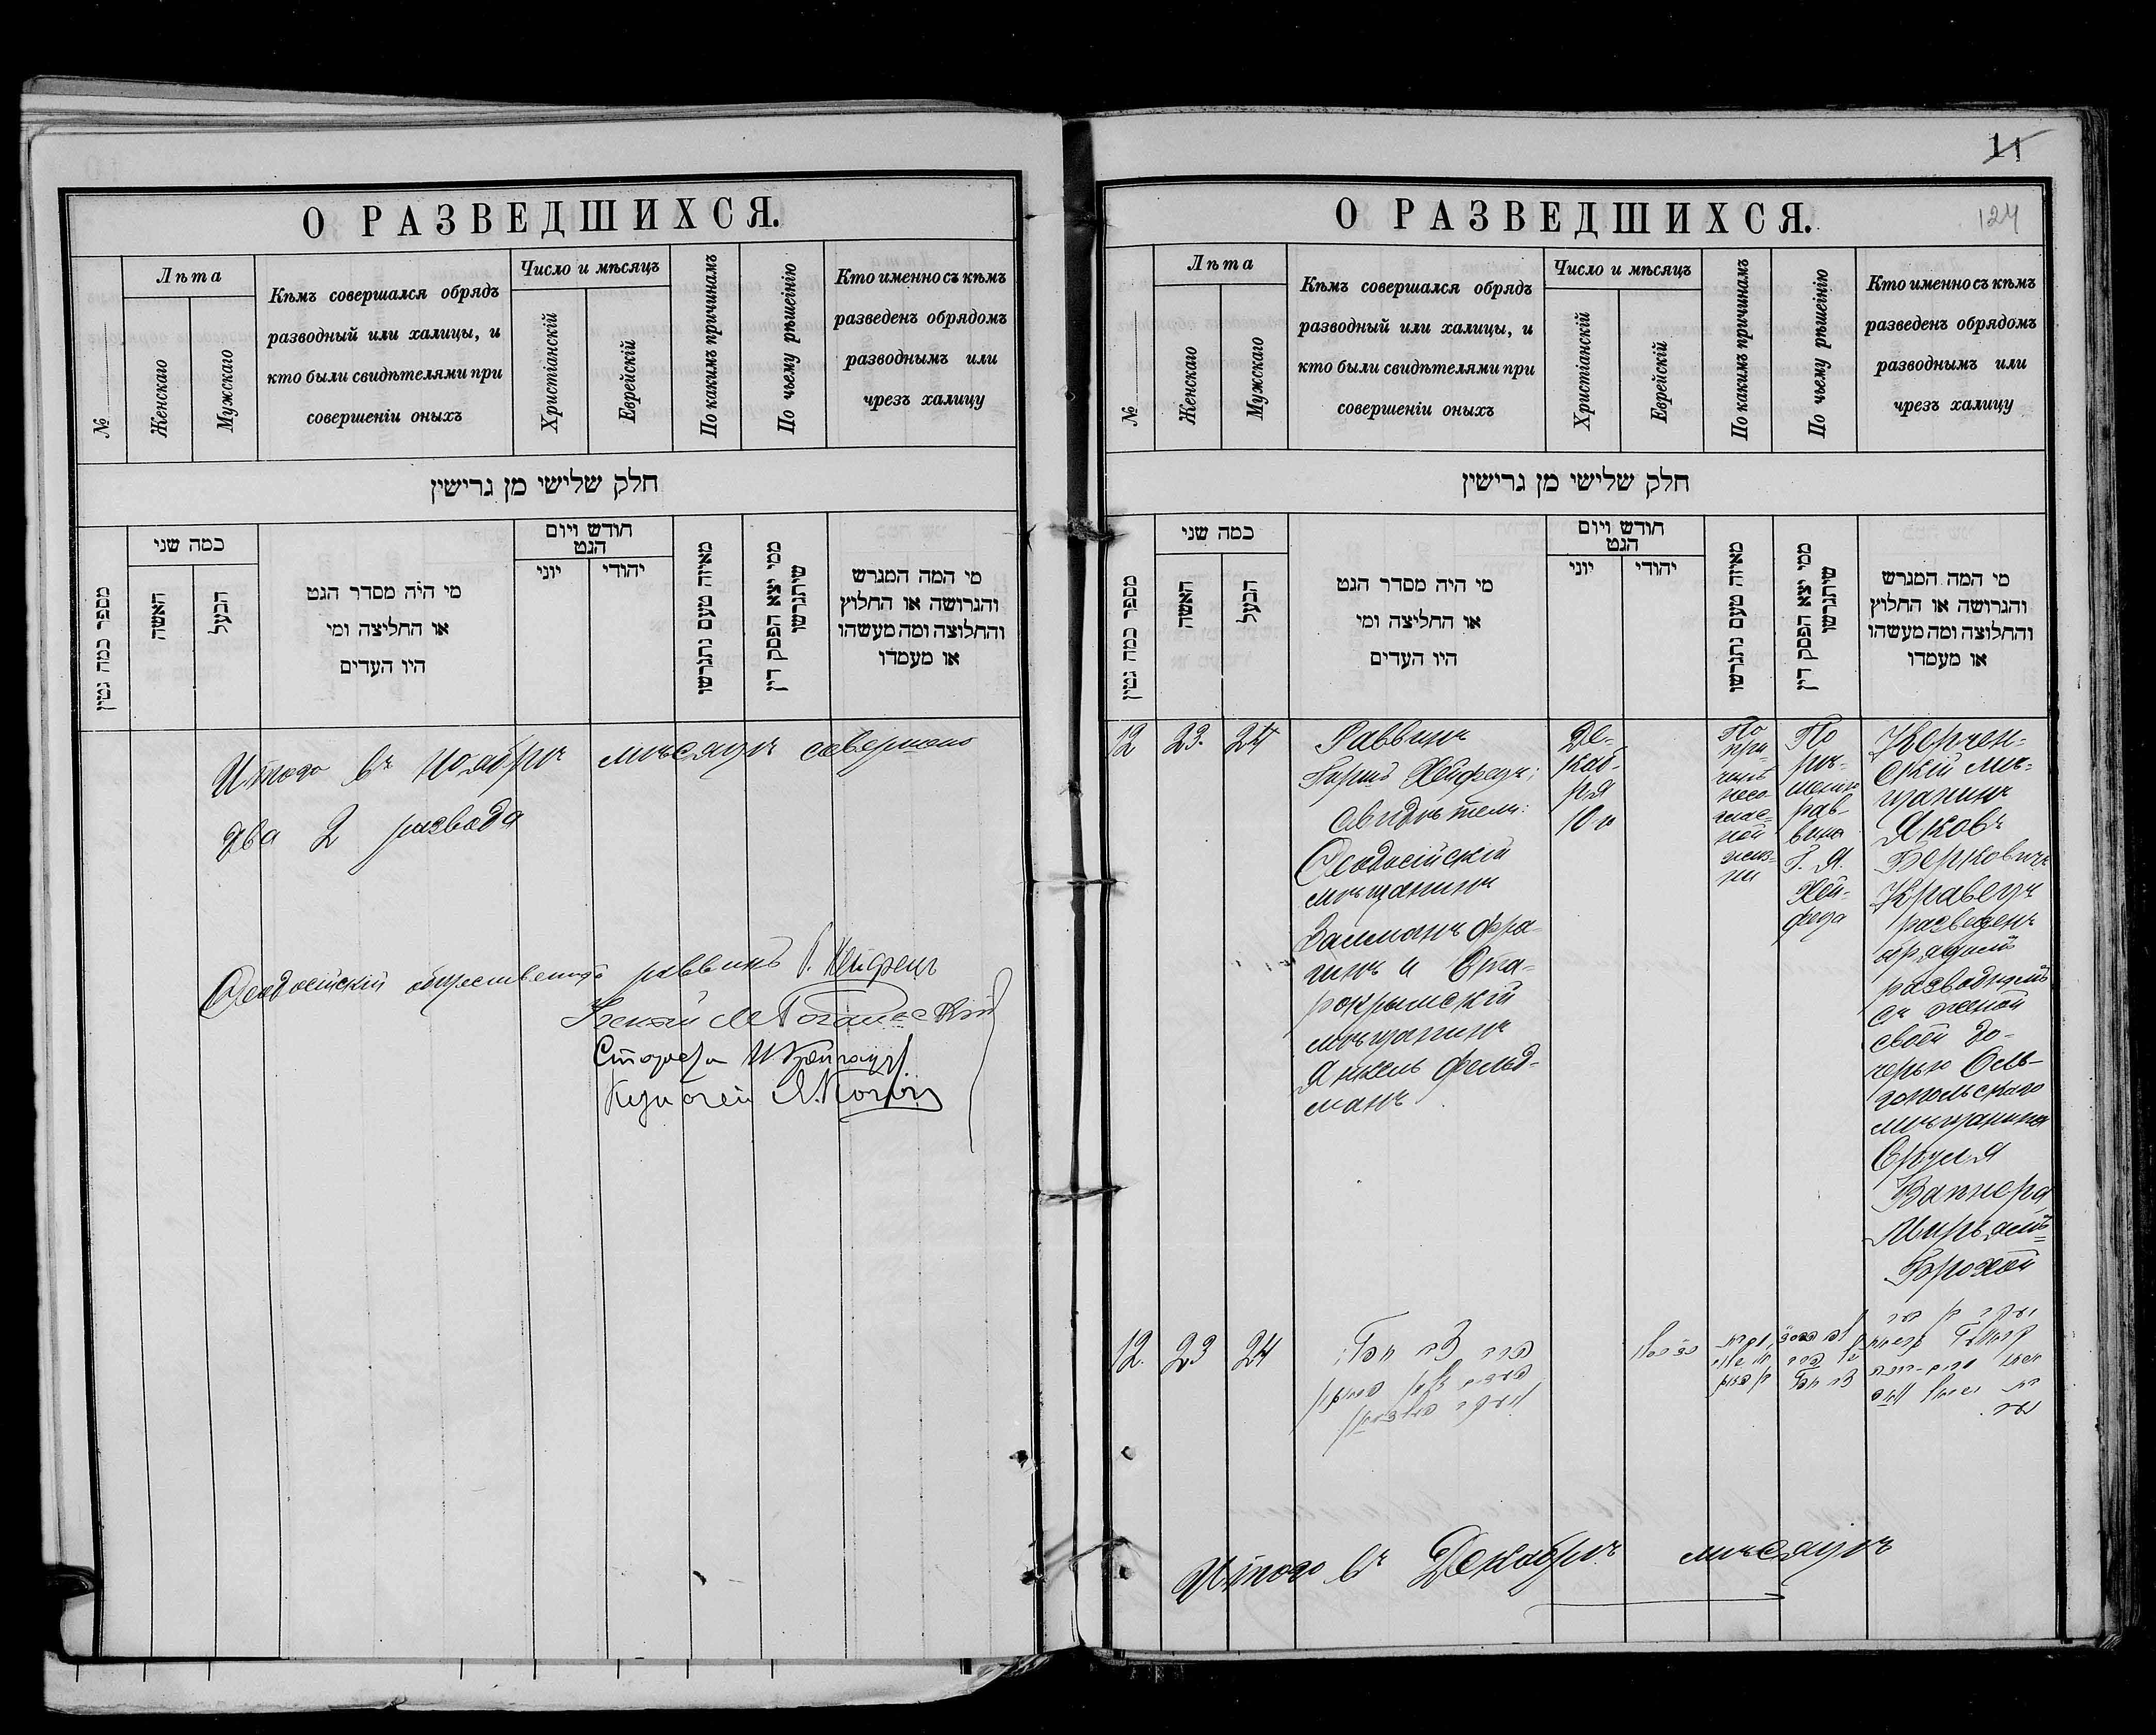 О РАЗВЕДШИХСЯ.
№
Лѣта
Женскаго
Мужскаго
Кѣмъ совершался обрядъ
разводный или халицы, и
кто были свидѣтелями при
совершеніи оныхъ
Число и мѣсяцъ
Христіанскій
Еврейскій
По какимъ причинамъ
По чьему рѣшенію
Кто именно съ кѣмъ
разведенъ обрядомъ
разводнымъ или
чрезъ халицу
חלק שלישי מן גרישין
מספר כמה גטין
כמה שני
האשה
הבעל
מי היה מסדר הגט
או החליצה ומי
היו העדים
חודש ויום
הגט
יוני
יהודי
מאיזה טעם נתגרשו
ממי יצא הפסק דין
שיתגרשו
מי המה המגרש
והגרושה או החלוץ
והחלוצה ומה מעשהו
או מעמדו
Итого въ Ноябрѣ мѣсяцѣ совершено
два 2 развода
Ѳеодосійскій общественный раввинъ Г. Хейфецъ
Ученый М.
Староста И.
Казначей Я.
11
124
О РАЗВЕДШИХСЯ.
№
Лѣта
Женскаго
Мужскаго
Кѣмъ совершался обрядъ
разводный или халицы, и
кто были свидѣтелями при
совершеніи оныхъ
Число и мѣсяцъ
Христіанскій
Еврейскій
По какимъ причинамъ
По чьему рѣшенію
Кто именно съ кѣмъ
разведенъ обрядомъ
разводнымъ или
чрезъ халицу
חלק שלישי מן גרישין
מספר כמה גטין
כמה שני
האשה
הבעל
מי היה מסדר הגט
או החליצה ומי
היו העדים
חודש ויום
הגט
יוני
יהודי
מאיזה טעם נתגרשו
ממי יצא הפסק דין
שיתגרשו
מי המה המגרש
והגרושה או החלוץ
והחלוצה ומה מעשהו
או מעמדו
12
23.
24
Раввинъ
Гиршъ Хейфецъ;
свидѣтели:
Ѳеодосійскій
мѣщанинъ
Залманъ Фра-
гинъ и Ста-
рокрымскій
мѣщанинъ
Янкель Фельд-
манъ
Де-
каб-
ря
10-го
По
при-
чинѣ
несо-
глас-
ной
жиз-
ни
По
рѣ-
шенію
рав-
вина
Г. Я.
Хей-
феца
Керчен-
скій мѣ-
щанинъ
Яковъ
Берковичъ
Кравецъ
разведенъ
обрядомъ
разводнымъ
съ женой
своей до-
черью Оль-
гопольскаго
мѣщанина
Сруля
Вапнера
Мирьямъ=
Брохой
12.
23
24
Итого въ Декабрѣ мѣсяцѣ